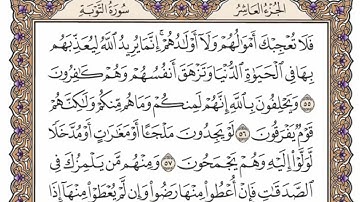 الجزء العاشر سورة التوبة
فَلَا تُعْجِبْكَ أَمْوَٰلُهُمْ وَلَآ أَوْلَٰدُهُمْ ۚ إِنَّمَا يُرِيدُ ٱللَّهُ لِيُعَذِّبَهُم
بِهَا فِى ٱلْحَيَوٰةِ ٱلدُّنْيَا وَتَزْهَقَ أَنفُسُهُمْ وَهُمْ كَٰفِرُونَ
٥٥ وَيَحْلِفُونَ بِٱللَّهِ إِنَّهُمْ لَمِنكُمْ وَمَا هُم مِّنكُمْ وَلَٰكِنَّهُمْ
قَوْمٌ يَفْرَقُونَ ٥٦ لَوْ يَجِدُونَ مَلْجَـًٔا أَوْ مَغَٰرَٰتٍ أَوْ مُدَّخَلًا
لَّوَلَّوْا۟ إِلَيْهِ وَهُمْ يَجْمَحُونَ ٥٧ وَمِنْهُم مَّن يَلْمِزُكَ فِى
ٱلصَّدَقَٰتِ فَإِنْ أُعْطُوا۟ مِنْهَا رَضُوا۟ وَإِن لَّمْ يُعْطَوْا۟ مِنْهَآ إِذَا